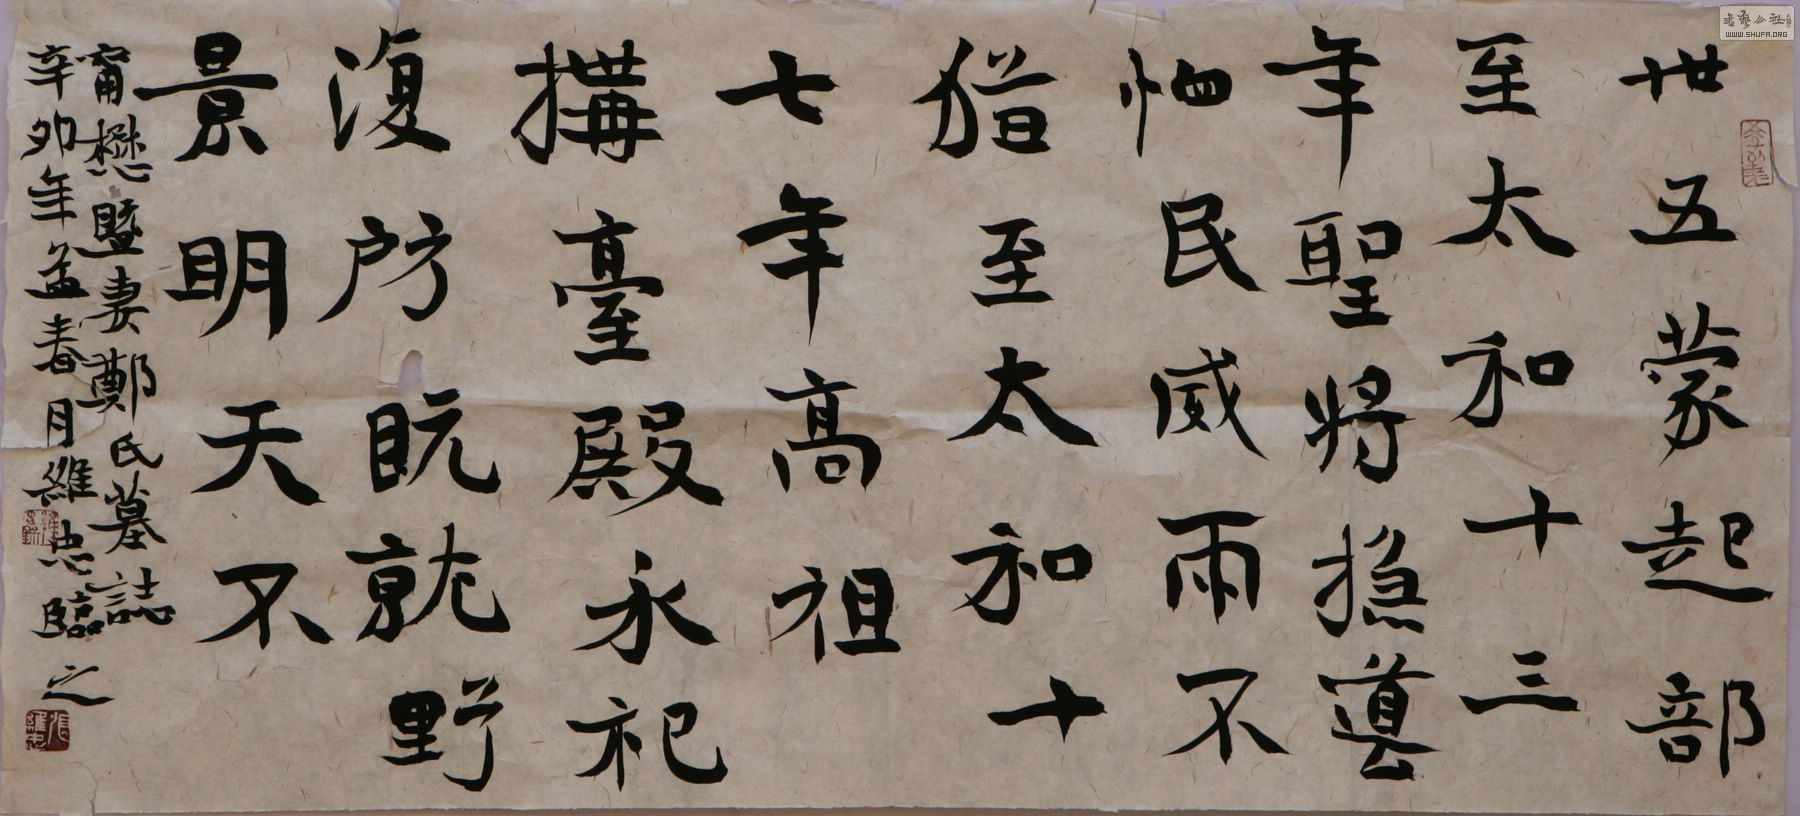 卅五蒙起部
至太和十三
年聖將挹導
恤民威雨不
猶至太和十
七年高祖
搆臺殿永祀
復所既就野
景明天不
甯懋暨妻鄭氏墓誌
辛卯年孟春月維忠臨之
WWW.SHUFA.ORG